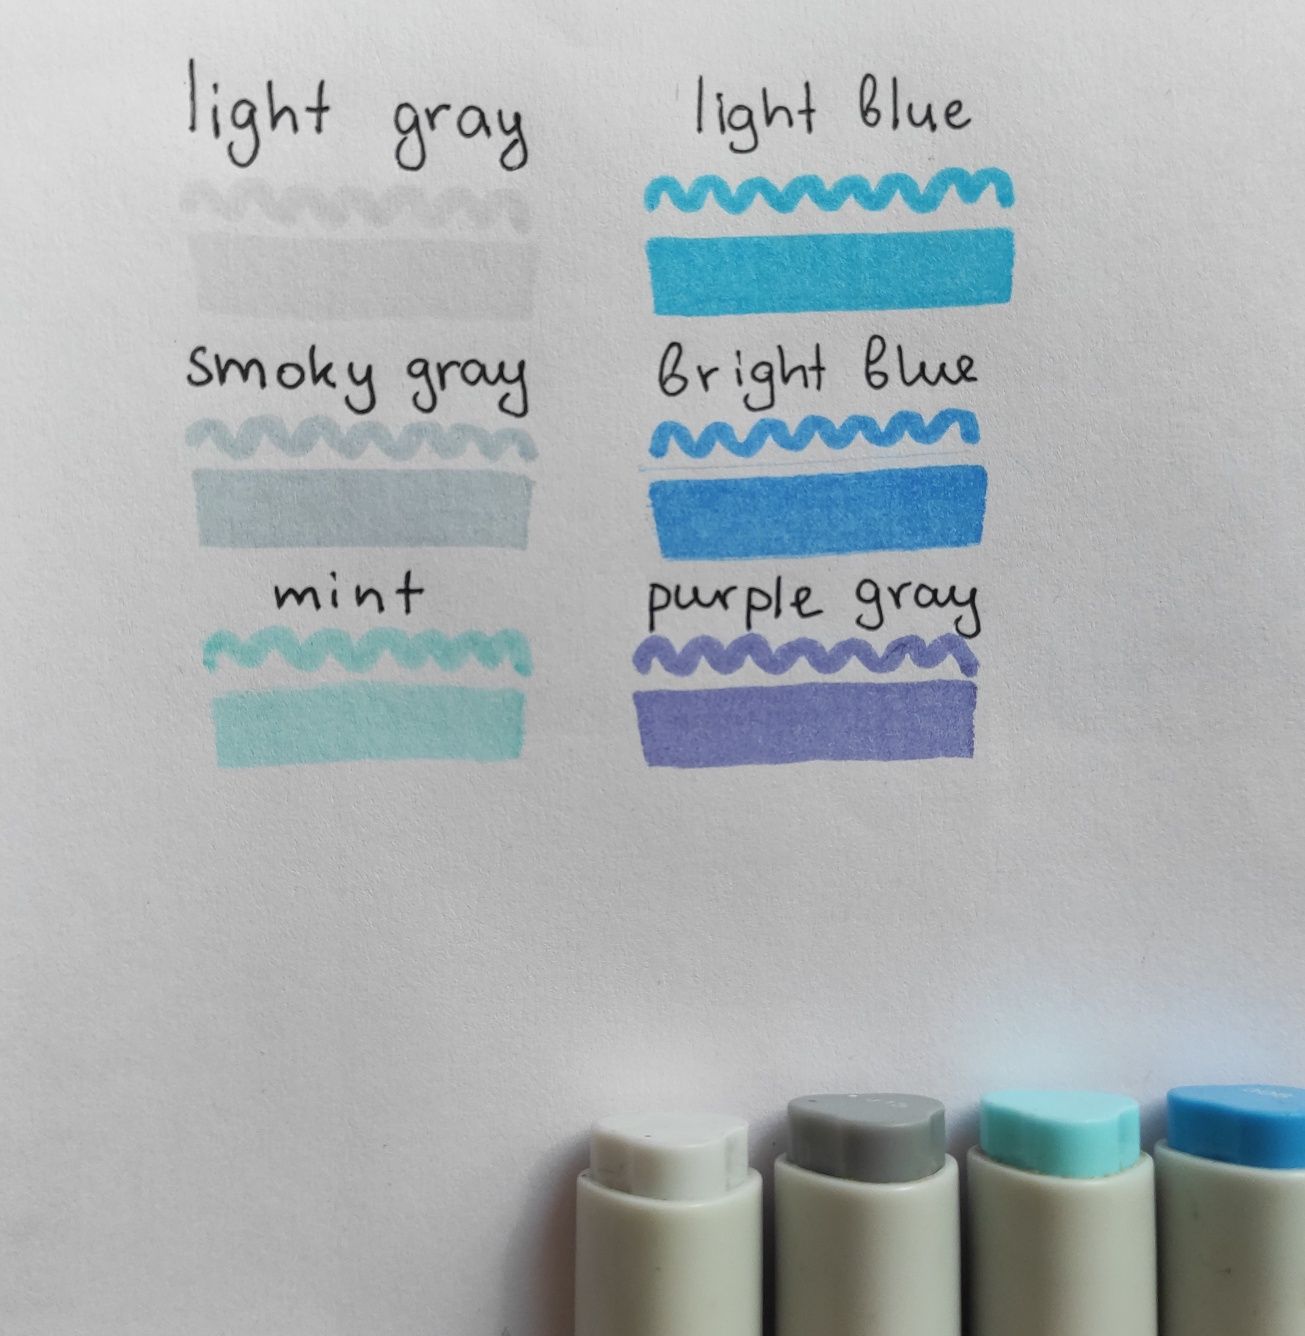 light gray
light blue
smoky gray
bright blue
mint
purple gray